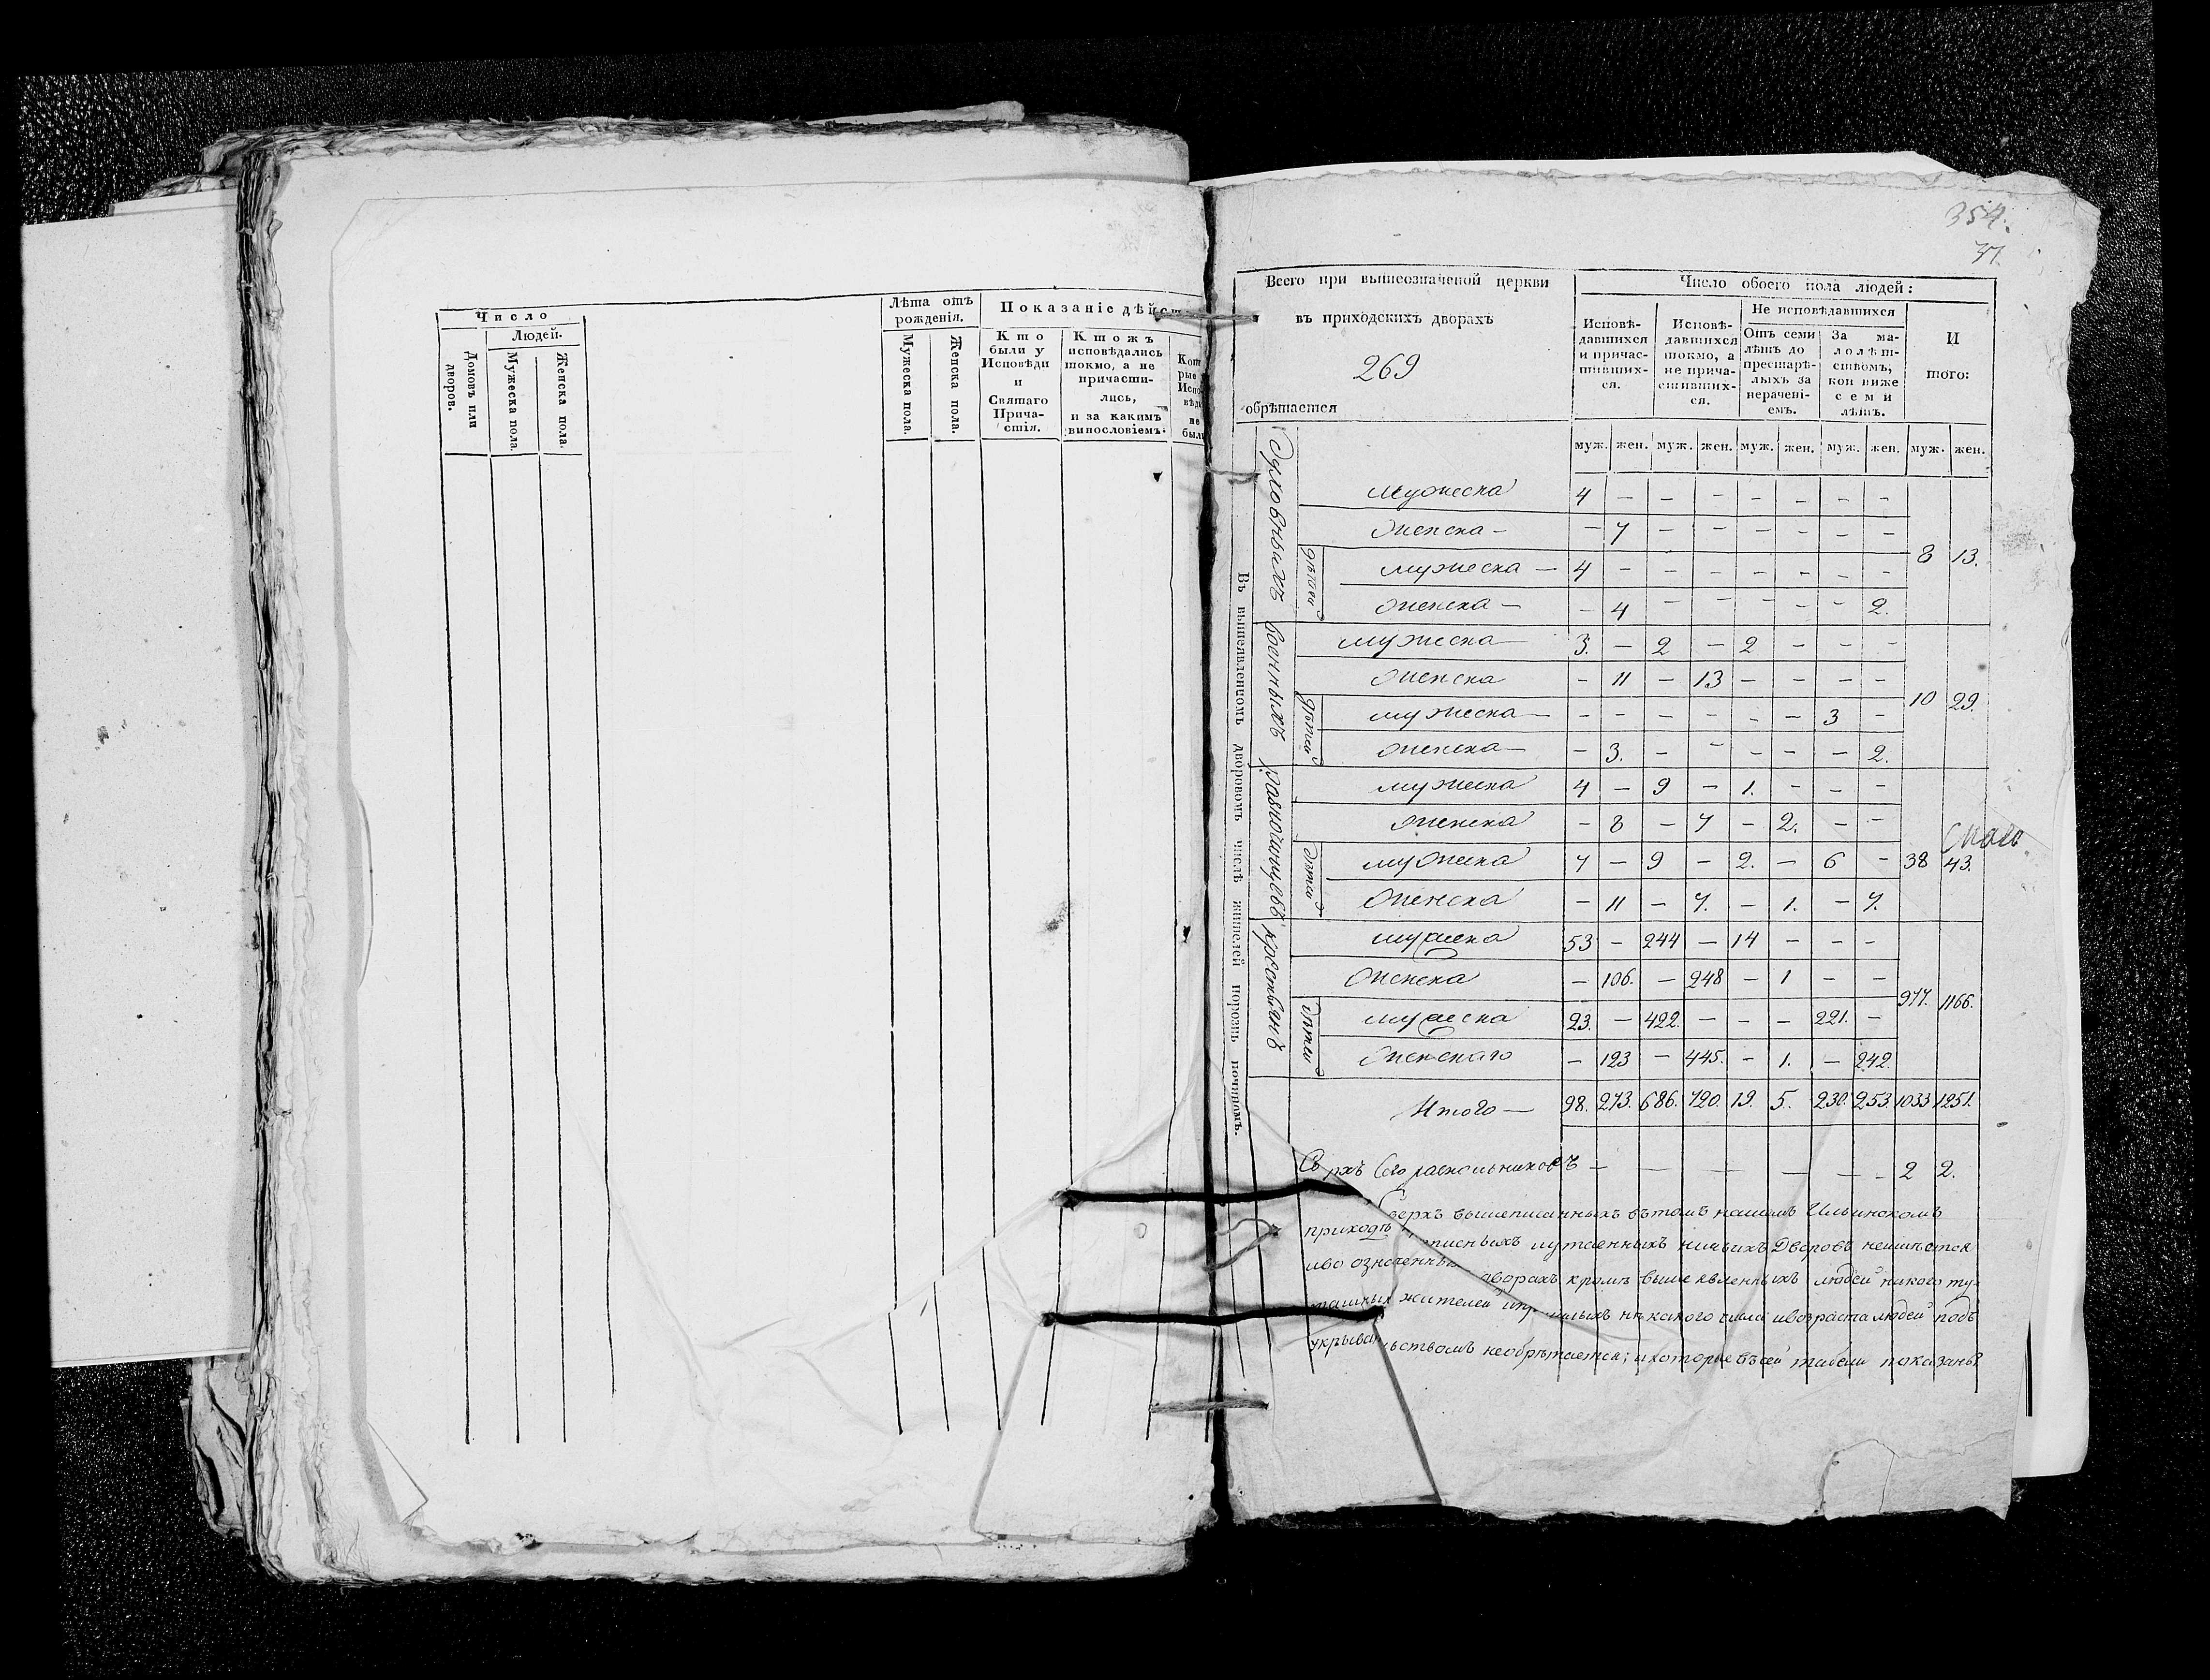 Число
Людей.
Домовъ или дворовъ.
Мужеска пола.
Женска пола.
Лѣта отъ рожденія.
Мужеска пола.
Женска пола.
Показаніе дѣйст
Кто были у Исповѣди и Святаго Причастія.
Ктожъ исповѣдались токмо, а не причастились, и за какимъ винословіемъ.
Кото
рые
Испо
вѣди
не
были
354.
Всего при вышеозначеной церкви
въ приходскихъ дворахъ
269
обрѣтается
Число обоего пола людей:
Исповѣдавшихся и причастившихся.
Исповѣдавшихся токмо, а не причастившихся.
Не исповѣдавшихся
Отъ семи лѣтъ до престарѣлыхъ за нераченіемъ.
За малолѣтствомъ, кои ниже семи лѣтъ.
И того:
муж. жен. муж. жен. муж. жен. муж. жен. муж. жен.
Въ вышеявленномъ дворовомъ числѣ жителей порознь починомъ.
Духовныхъ
мужеска 4 – – – – – – –
женска – – 7 – – – – – –
дѣтей
мужеска – 4 – – – – – – –
женска – – 4 – – – – – 2.
8 13.
Военныхъ
мужеска 3. – 2 – 2 – – –
женска – 11 – 13 – – – –
дѣтей
мужеска – – – – – – – 3 –
женска – – 3. – – – – – 2.
10 29.
разночинцевъ
мужеска 4 – 9 – 1. – – –
женска – 8 – 7 – 2. – –
дѣтей
мужеска 7 – 9 – 2. – 6 –
женска – 11 – 7. – 1. – 7.
38 43.
крестьянъ
мужеска 53 – 244 – 14 – – –
женска – 106. – 248 – 1 – –
дѣтей
мужеска 23. – 422. – – – 221. –
женскаго – 123 – 445. – 1. – 242.
977. 1166.
Итого – 98. 273. 686. 720. 19. 5. 230. 253. 1033 1251.
Св рхъ сего раскольниковъ – – – – – – 2 2.
Сверхъ вышеписанныхъ вътомъ нашемъ Ильинскомъ
приходѣ писныхъ иутаенныхъ ничьихъ Дворовъ неимѣется
иво означенны дворахъ кромѣ вышеявленныхъ людей никого ту
ташныхъ жителей ипр шлыхъ никакого чина ивозраста людей подъ
укрыва ьствомъ необрѣтается; икоторые въсей табели показаны